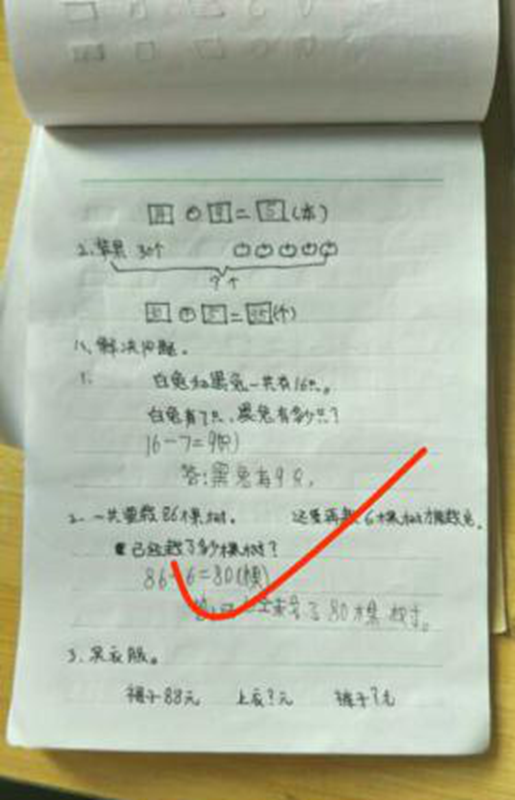 =5(本)
2、苹果 30个
?个
=35(个)
八、解决问题。
1、 白兔和黑兔一共有16只。
白兔有7只,黑兔有多少只?
16-7=9(只)
答:黑兔有9只。
2、一共要栽86棵树。 还要再栽6棵树才能栽完。
已经栽了多少棵树?
86-6=80(棵)
了80棵树。
3、买衣服。
裤子88元 上衣?元 裤子?元